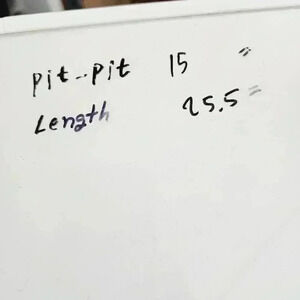 Pit-Pit 15 "
Length 25.5 "